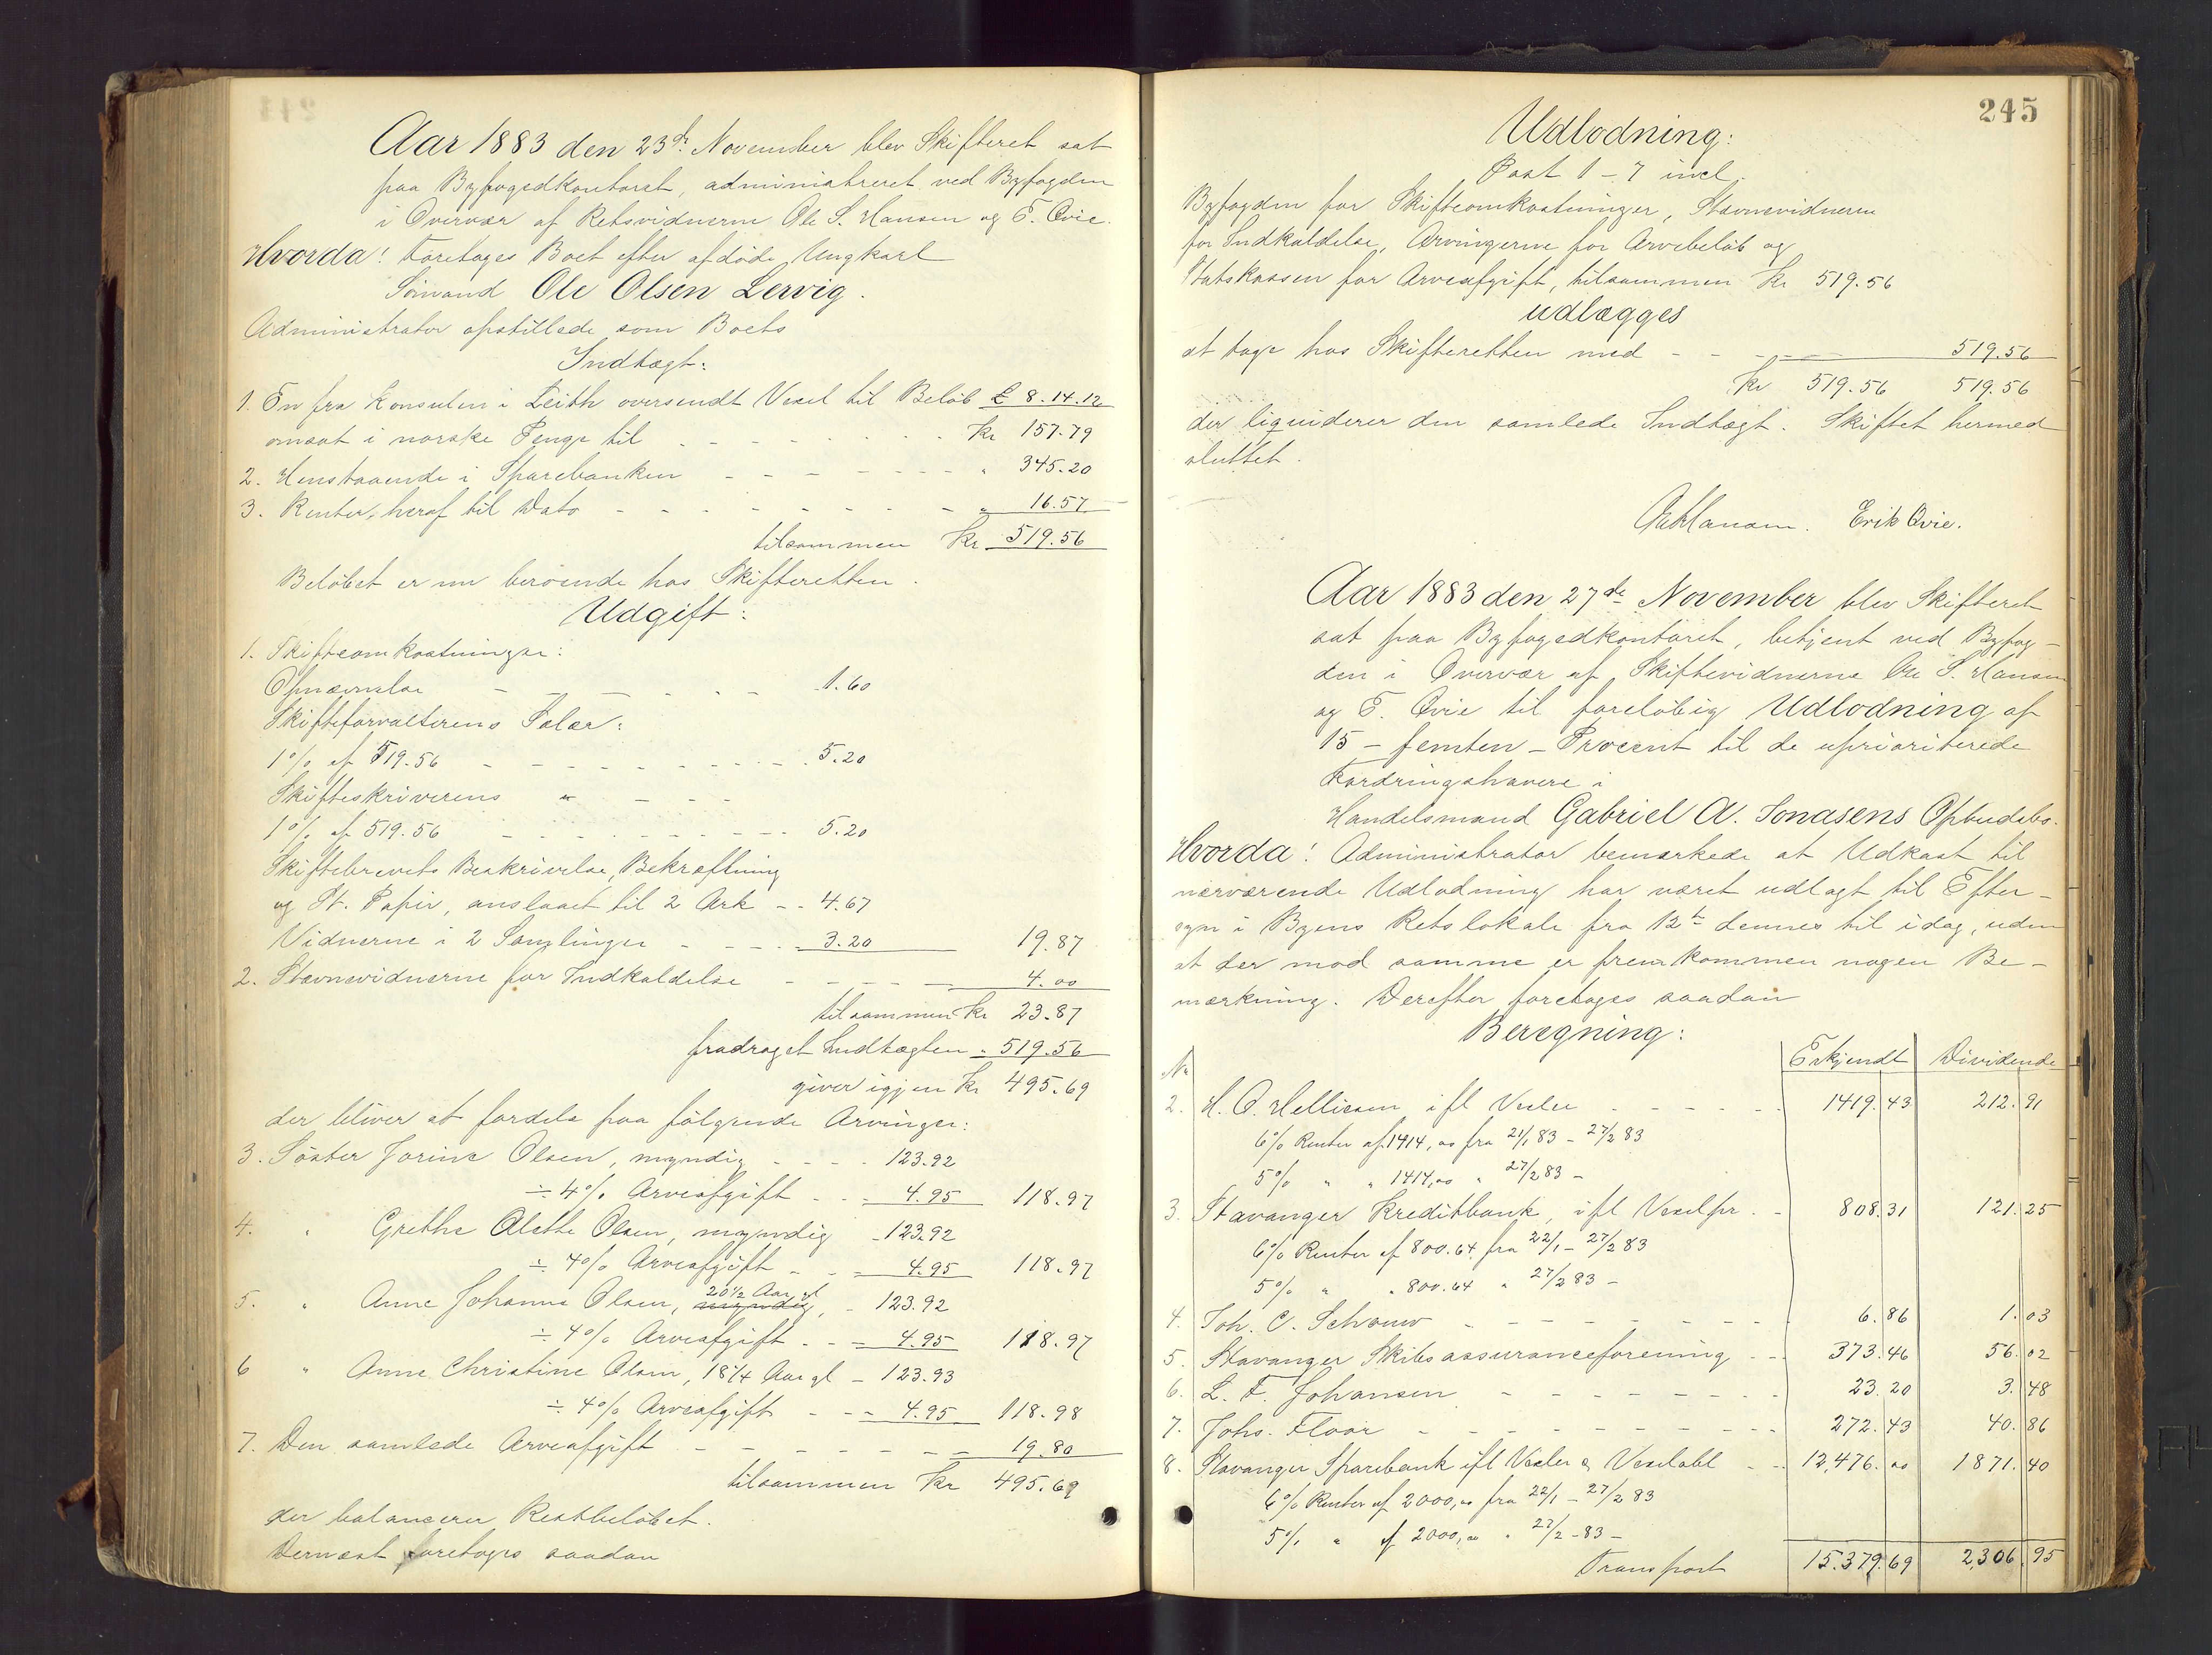 Aar 1883 den 23de November blev Skifteret sat
paa Byfogedkontoret, administreret ved Byfogden
i Overvær af Retsvidnerne Ole S. Hansen og E. Qvie.
Hvorda! Foretoges Boet efter afdøde Ungkarl
Sømand Ole Olsen Lervig.
Administrator opstillede som Boets
Indtægt:
1. En fra Konsulen i Leith oversendt Vexel til Beløb £ 8.14.12
omsat i norske Penge til - - - Kr 157.79
2. Henstaaende i Sparebanken - - - " 345.20
3. Renter heraf til Dato - - - " 16.57
tilsammen Kr 519.56
Beløbet er nu beroende hos Skifteretten.
Udgift:
1. Skifteomkostninger:
Opnævnelse - - - 1.60
Skifteforvalterens Salær:
1% af 519.56 - - - 5.20
Skifteskriverens " - - -
1% af 519.56 - - - 5.20
Skiftebrevets Beskrivelse, Bekræftning
og St. Papir, anslaaet til 2 Ark - - 4.67
Vidnerne i 2 Samlinger - - - 3.20 19.87
2. Stævnevidnerne for Indkaldelse - - - 4.00
tilsammen Kr 23.87
fradraget Indtægten " 519.56
giver igjen Kr 495.69
der bliver at fordele paa følgende Arvinger:
3. Søster Jorine Olsen, myndig - - - 123.92
÷ 4% Arveafgift - - - 4.95 118.97
4. " Grethe Alethe Olsen, myndig - 123.92
÷ 4% Arveafgift - - 4.95 118.97
20½ Aar gl
5. " Anne Johanne Olsen, myndig, - 123.92
÷ 4% Arveafgift - - 4.95 118.97
6 " Anne Christine Olsen, 18¼ Aar gl - 123.93
÷ 4% Arveafgift - - - 4.95 118.98
7. Den samlede Arveafgift - - - 19.80
tilsammen Kr 495.69
der balancerer Restbeløbet.
Dernæst foretoges saadan
245
Udlodning:
Post 1 - 7 incl.
Byfogden for Skifteomkostninger, Stævnevidnerne
for Indkaldelse, Arvingerne for Arvebeløb og
Statskassen for Arveafgift, tilsammen Kr 519.56
udlægges
at tage hos Skifteretten med - - - 519.56
Kr 519.56 519.56
der liquiderer den samlede Indtægt. Skiftet hermed
sluttet.
Erik Qvie.
Aar 1883 den 27de November blev Skifteret
sat paa Byfogedkontoret, betjent ved Byfog-
den i Overvær af Skiftevidnerne Ole S. Hansen
og E. Qvie til foreløbig Udlodning af
15 - femten - Procent til de uprioriterede
Fordringshavere i
Handelsmand Gabriel A. Jonasens Opbudsbo.
Hvorda! Administrator bemærkede at Udkast til
nærværende Udlodning har været udlagt til Efter-
syn i Byens Retslokale fra 12te dennes til idag, uden
at der mod samme er fremkommen nogen Be-
mærkning. Derefter foretoges saadan
Beregning:
No Erkjendt Dividende
2. H. O. Hellisen ifl Vexler - - - 1419.43 212.91
6% Renter af 1414,00 fra 21/1 83 - 27/2 83
5% " " 1414,00 " 27/2 83 -
3. Stavanger Kreditbank, ifl Vexelpr. - 808.31 121.25
6% Renter af 800.64 fra 22/1 - 27/2 83
5% " " 800.64 " 27/2 83 -
4. Joh. C. Schouw - - - 6.86 1.03
5. Stavanger Skibsassuranceforening - - 373.46 56.02
6. L. F. Johansen - - - 23.20 3.48
7. Johs. Floor - - - 272.43 40.86
8. Stavanger Sparebank ifl Vexler & Vexelobl - - 12,476.00 1871.40
6% Renter af 2000,00 fra 22/1 - 27/2 83
5% " af 2000,00 " 27/2 - 83 -
Transport 15.379.69 2,306.95